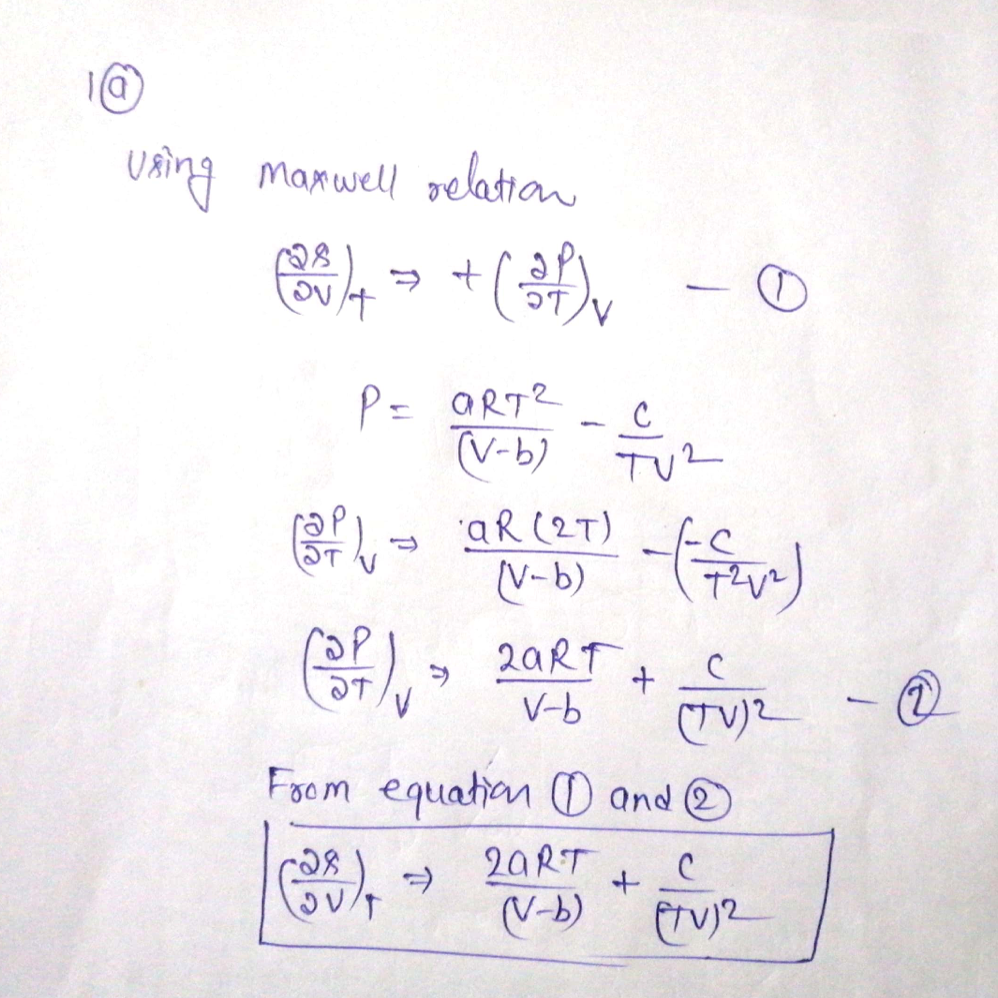 1(a)
Using Maxwell relation
(∂s/∂V)_T ⇒ +(∂P/∂T)_V — ①
P = aRT²/(V-b) - C/TV²
(∂P/∂T)_V ⇒ aR(2T)/(V-b) - (-C/T²V²)
(∂P/∂T)_V ⇒ 2aRT/V-b + C/(TV)² — ②
From equation ① and ②
(∂s/∂V)_T ⇒ 2aRT/(V-b) + C/(TV)²